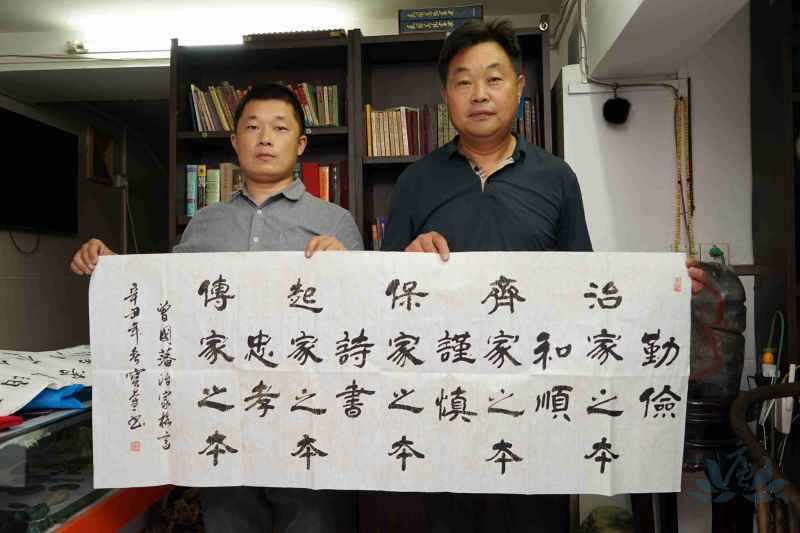 勤儉
治家之本
和順
齊家之本
謹慎
保家之本
詩書
起家之本
忠孝
傳家之本
曾國藩治家格言
辛丑年